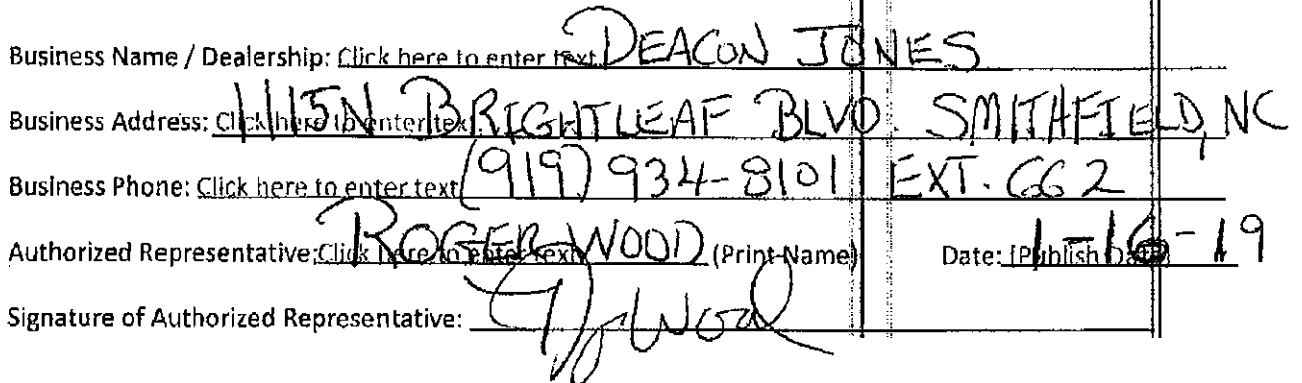 Business Name / Dealership: Click here to enter text. DEACON JONES
Business Address: Click here to enter text. 1115 N BRIGHTLEAF BLVD. SMITHFIELD, NC
Business Phone: Click here to enter text. (919) 934-8101 EXT. 662
Authorized Representative: Click here to enter text. ROGER WOOD (Print Name) Date: [Publish Date] 1-16-19
Signature of Authorized Representative: Wood